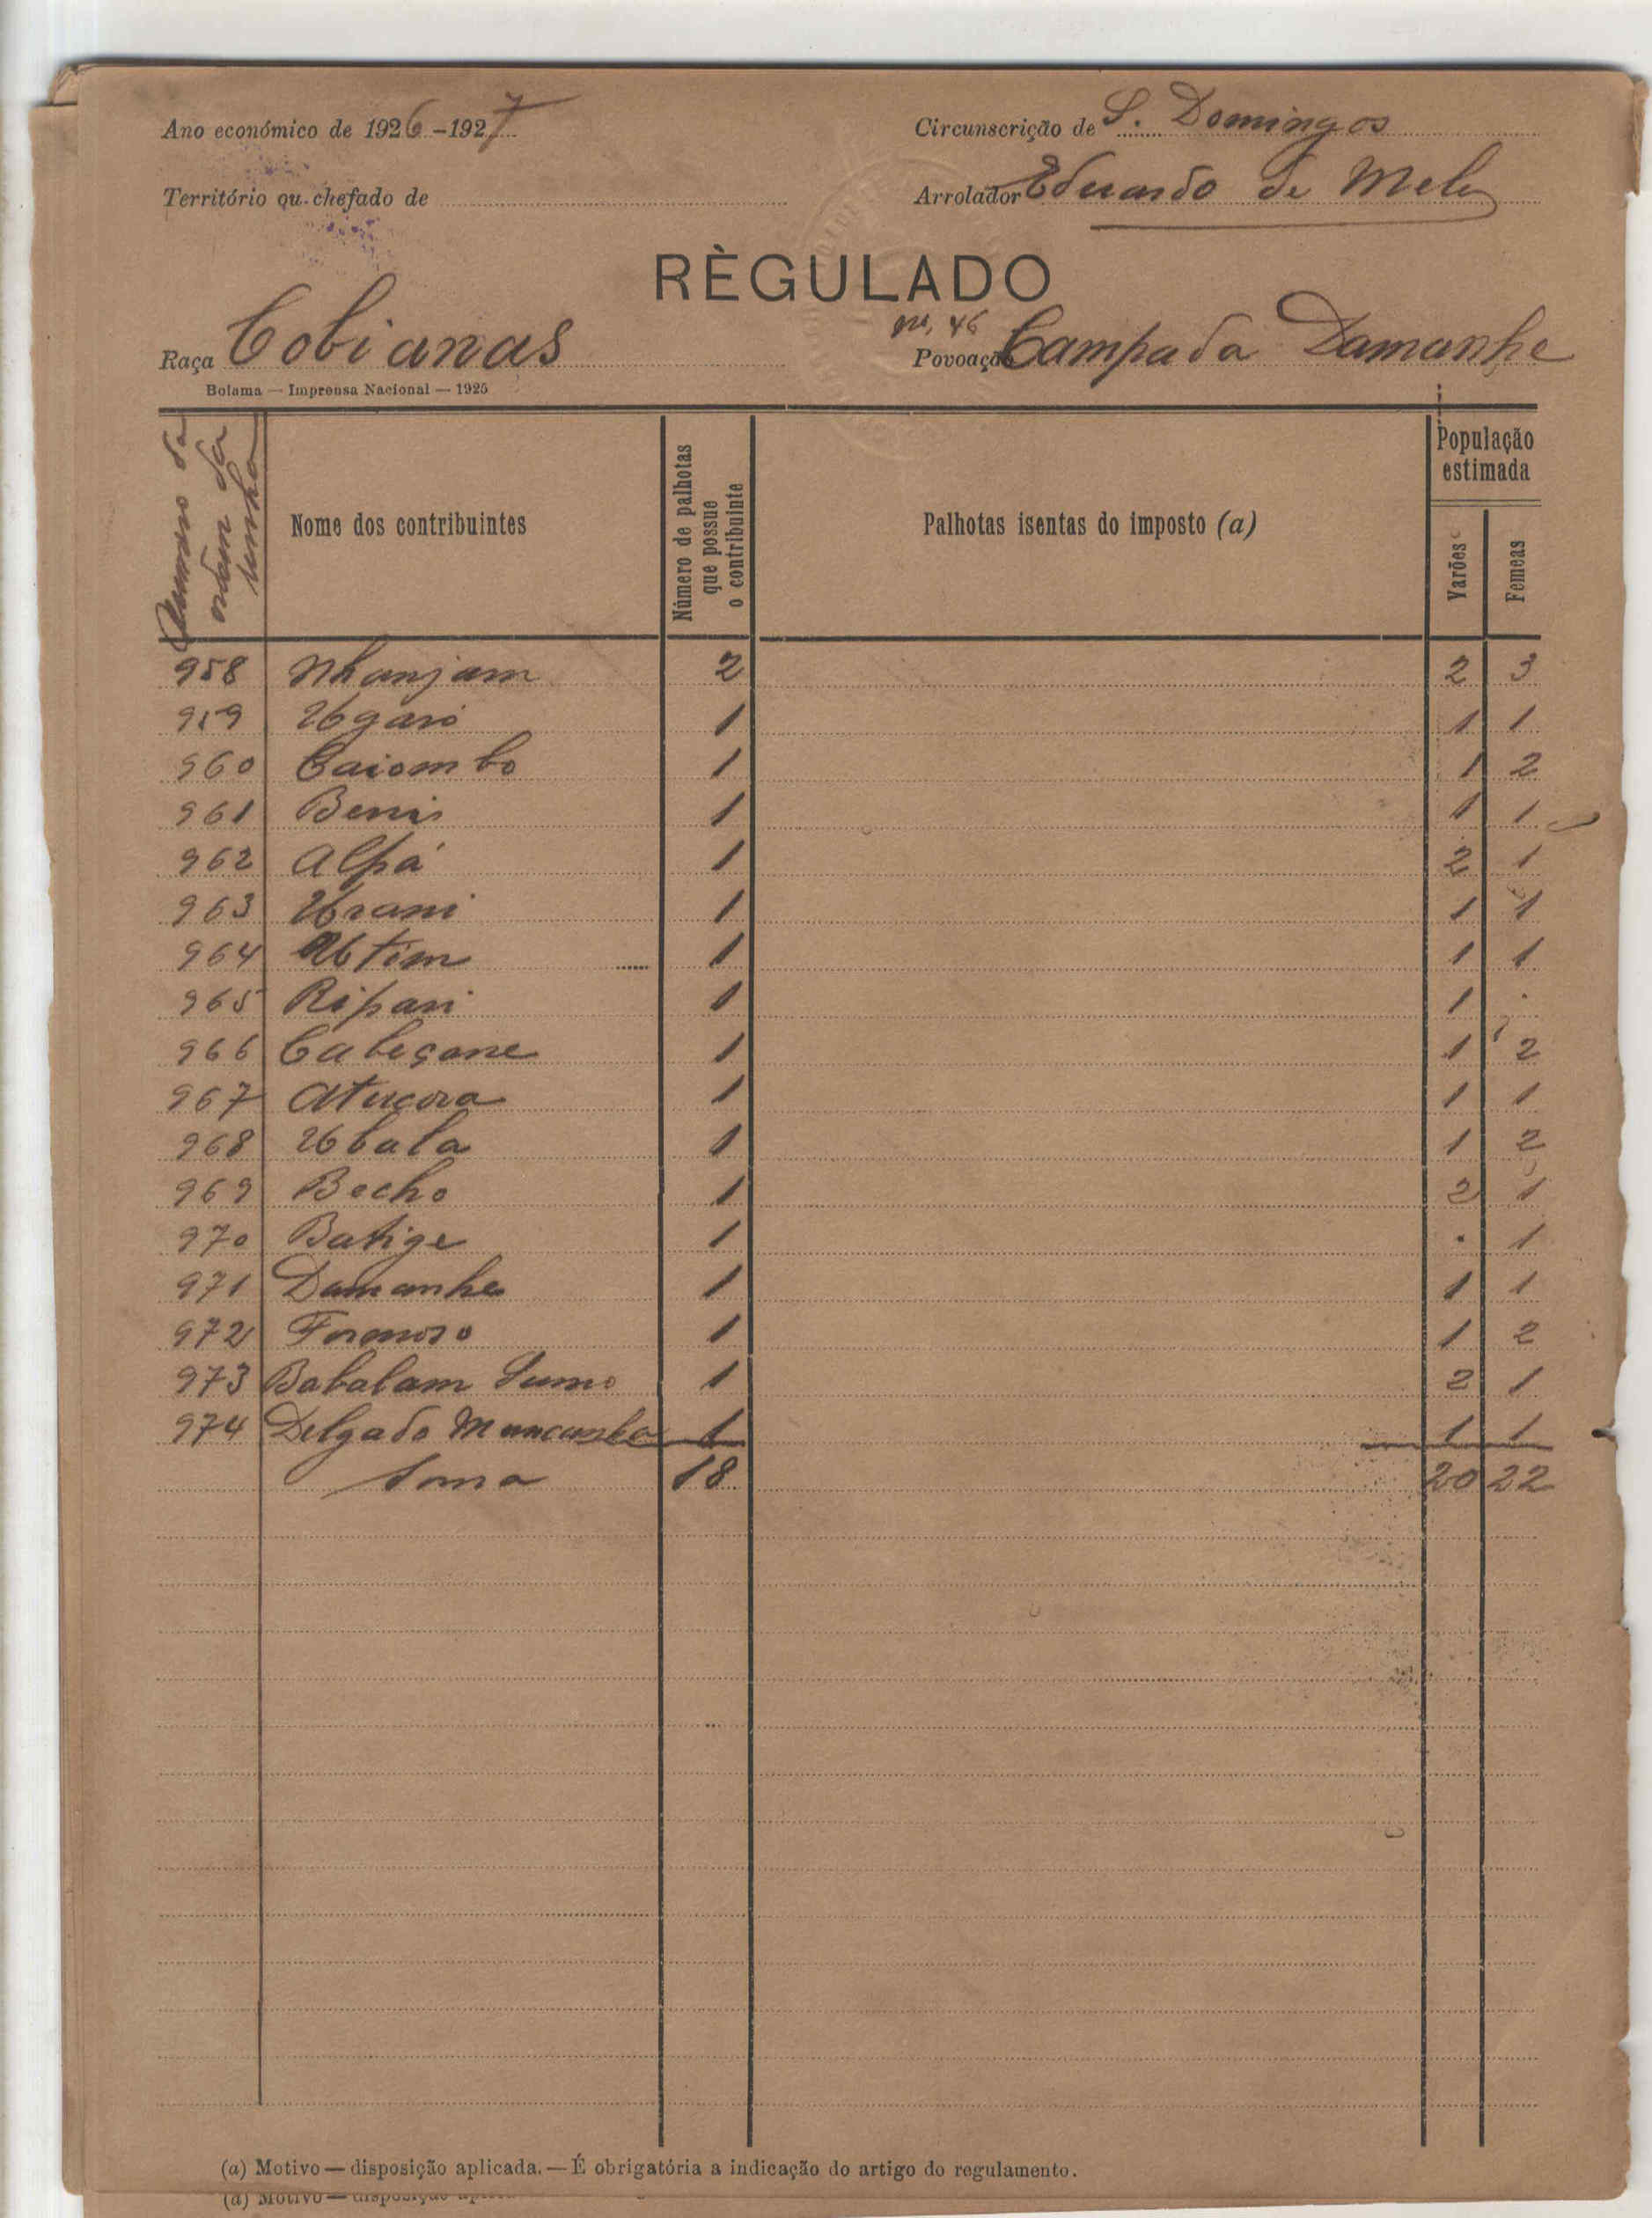 Ano económico de 1926-1927
Circunscrição de S. Domingos
Território ou chefado de
Arrolador Eduardo de Melo
RÈGULADO
Raça Cobianas
nº, 46
Povoação Campada Damanhe
Bolama — Imprensa Nacional — 1925
Numero da ordem da senha
Nome dos contribuintes
Número de palhotas que possue o contribuinte
Palhotas isentas do imposto (a)
População estimada
Varões
Femeas
958 Nhanjam 2 2 3
959 Ugaró 1 1 1
960 Caiombo 1 1 2
961 Benis 1 1 1
962 Alpá 1 2 1
963 Urani 1 1 1
964 Utim 1 1 1
965 Ripari 1 1 .
966 Cabeçane 1 1 2
967 Atucora 1 1 1
968 Ubala 1 1 2
969 Becho 1 2 1
970 Batige 1 . 1
971 Damanhe 1 1 1
972 Formoso 1 1 2
973 Babalam Sumo 1 2 1
974 Delgado Mancanha 1 1 1
Soma 18 20 22
(a) Motivo — disposição aplicada. — É obrigatória a indicação do artigo do regulamento.
(a) Motivo — disposição